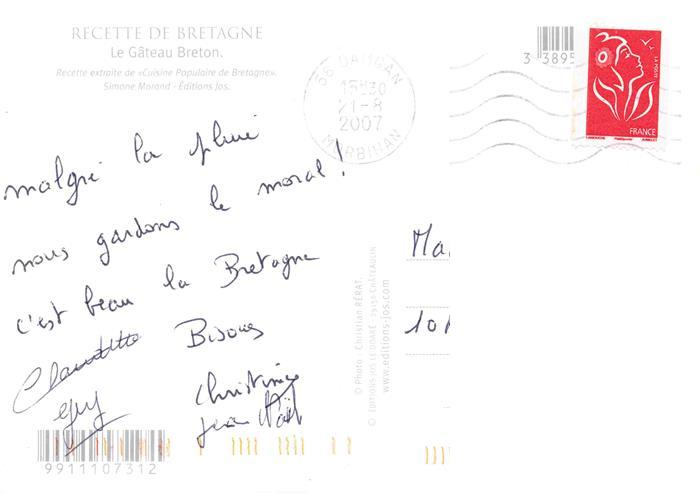 RECETTE DE BRETAGNE
Le Gâteau Breton.
Recette extraite de «Cuisine Populaire de Bretagne».
Simone Morand - Éditions Jos.
malgré la pluie
nous gardons le moral !
c'est beau la Bretagne
Bisous
Claudette
Guy
Christine
Jean Noël
9911107312
56 DAMGAN
15H30
21-8
2007
MORBIHAN
3 3895
LA POSTE
FRANCE
© Photo : Christian RÉRAT.
© ÉDITIONS JOS LE DOARÉ - 29150 CHÂTEAULIN
www.editions-jos.com
Ma
10